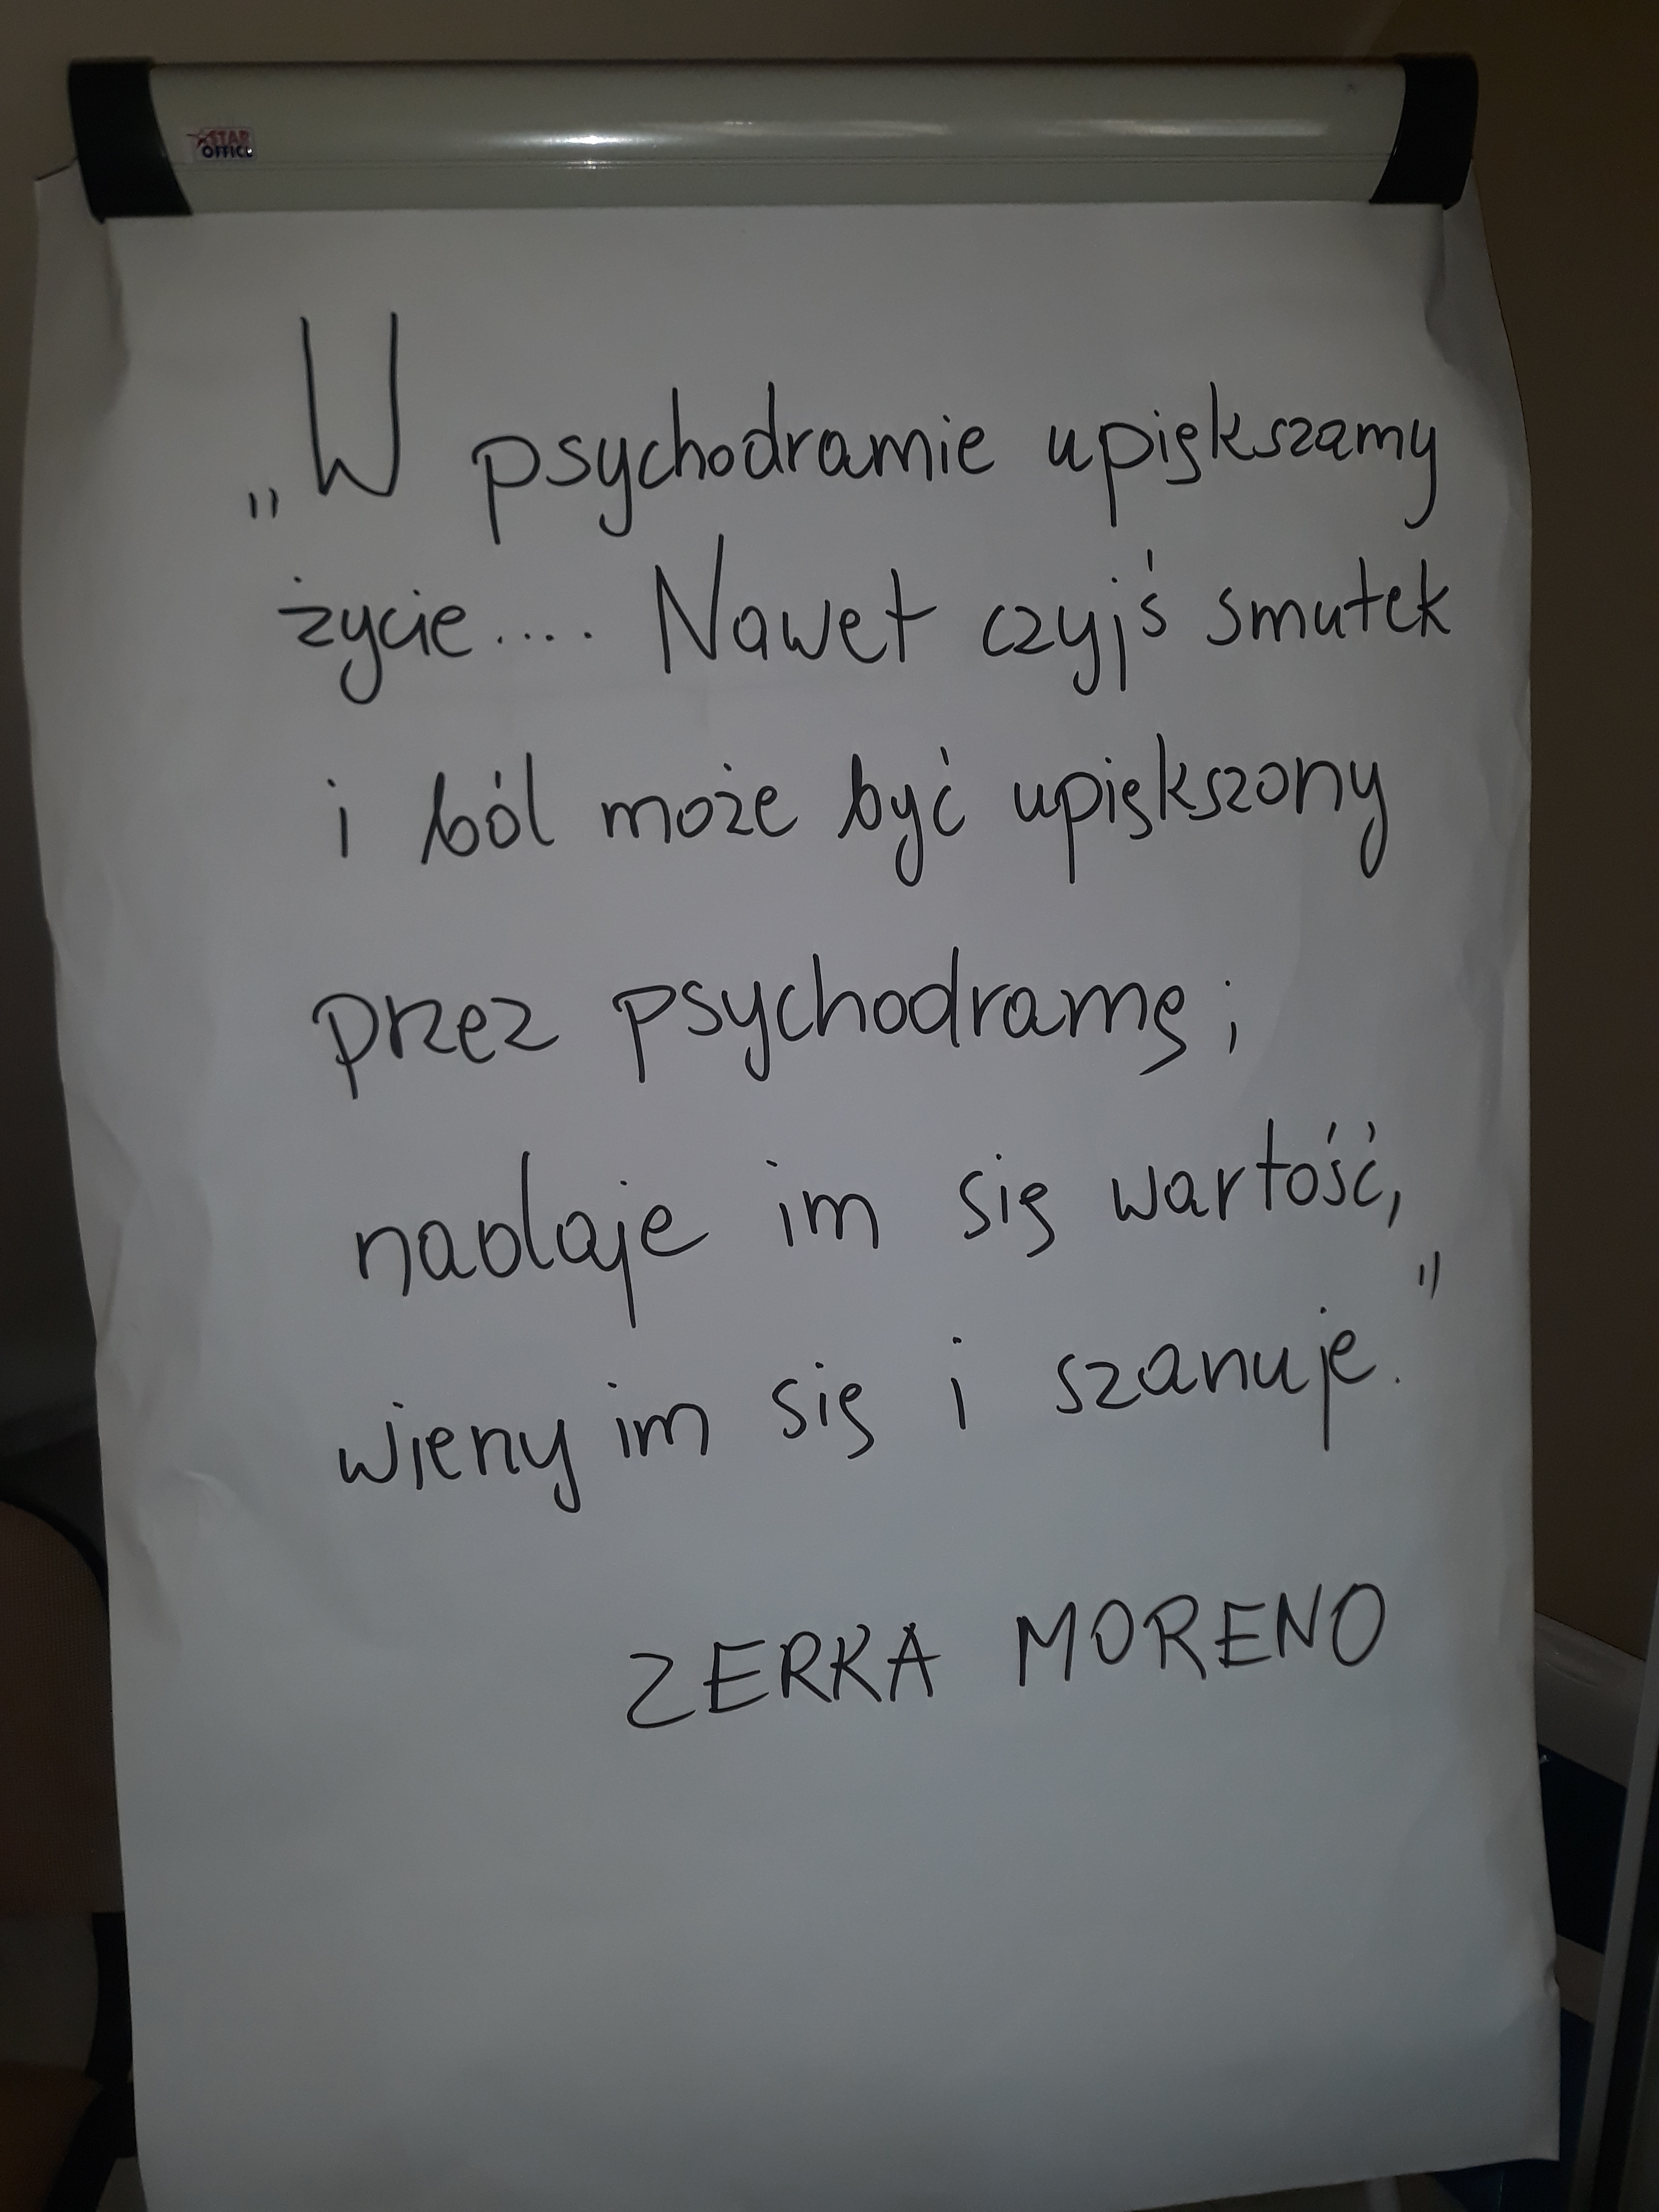 STAR
OFFICE
„W psychodramie upiększamy
życie.... Nawet czyjś smutek
i ból może być upiększony
przez psychodramę;
nadaje im się wartość,
wierzy im się i szanuje.”
ZERKA MORENO